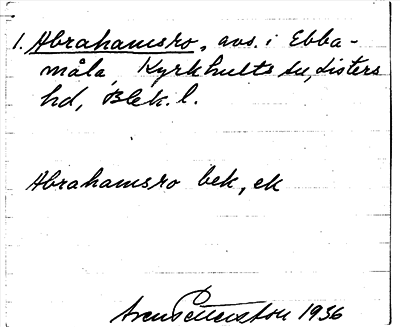 1. Abrahamsro, avs. i Ebba-
måla, Kyrkhults sn, Listers
hd, Blek. l.
Abrahamsro bek, ek
1936